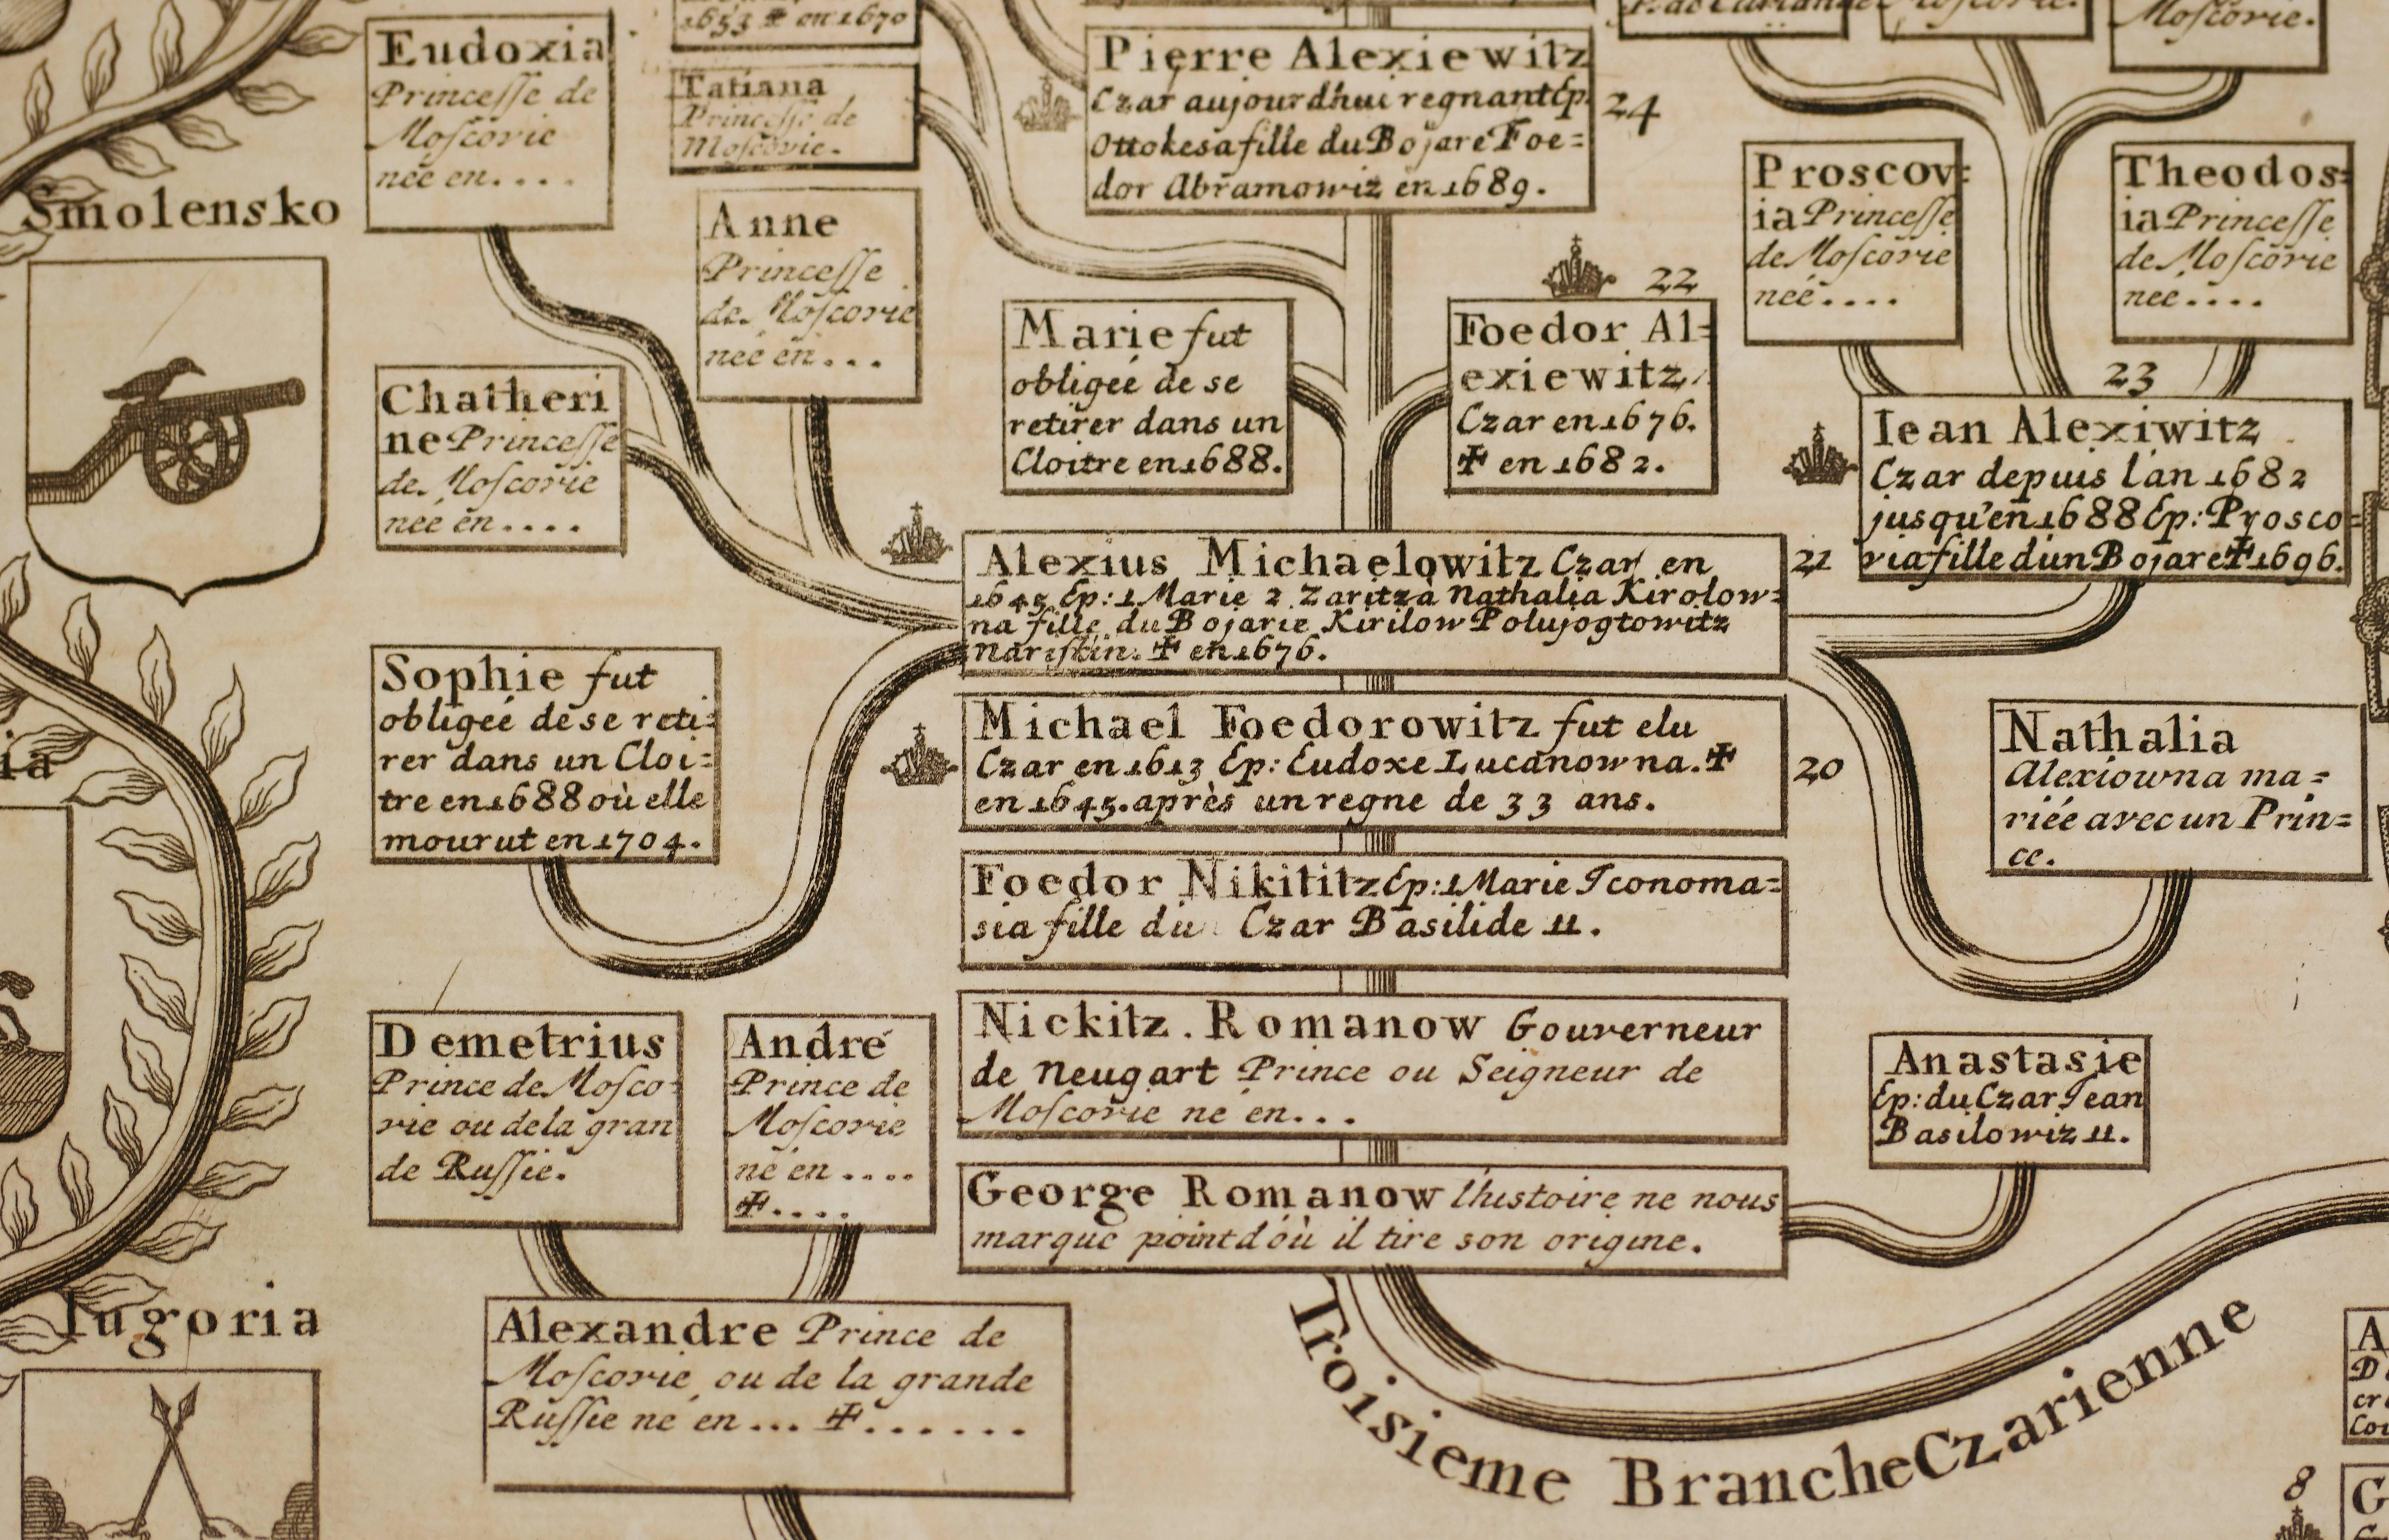 Eudoxia
Princesse de
Moscovie
née en....
1653 ✝ en 1670
Tatiana
Princesse de
Moscovie.
Pierre Alexiewitz
Czar aujourdhui regnant Ep.
Ottokesa fille du Bojare Foe=
dor Abramowiz en 1689.
24
Moscovie.
Moscovie.
Smolensko
Anne
Princesse
de Moscovie
neé en...
Proscov=
ia Princesse
de Moscovie
neé....
Theodos=
ia Princesse
de Moscovie
neé....
Marie fut
obligeé de se
retirer dans un
Cloitre en 1688.
22
Foedor Al=
exiewitz.
Czar en 1676.
✝ en 1682.
Chatheri
ne Princesse
de Moscovie
neé en....
23
Iean Alexiwitz
Czar depuis l'an 1682
jusqu'en 1688 Ep: Prosco=
via fille d'un Bojare ✝ 1696.
Alexius Michaelowitz Czar en
1645 Ep: 1 Marie 2. Zaritza Nathalia Kirolow=
na fille du Bojarie Kirilow Polujogtowitz
Nariskin. ✝ en 1676.
21
Sophie fut
obligeé de se reti=
rer dans un Cloi=
tre en 1688 où elle
mourut en 1704.
ia
Michael Foedorowitz fut elu
Czar en 1613 Ep: Eudoxe Lucanowna. ✝
en 1645. après un regne de 33 ans.
20
Nathalia
Alexiowna ma=
riéé avec un Prin=
ce.
Foedor Nikititz Ep: 1 Marie Iconoma=
sia fille du Czar Basilide II.
Demetrius
Prince de Mosco=
vie ou de la gran
de Russie.
André
Prince de
Moscovie
né en ....
✝....
Nickitz. Romanow Gouverneur
de Neugart Prince ou Seigneur de
Moscovie né en...
Anastasie
Ep: du Czar Jean
Basilowiz II.
George Romanow l'histoire ne nous
marque point d'où il tire son origine.
Iugoria
Alexandre Prince de
Moscovie ou de la grande
Russie né en ... ✝......
Troisieme Branche Czarienne
8